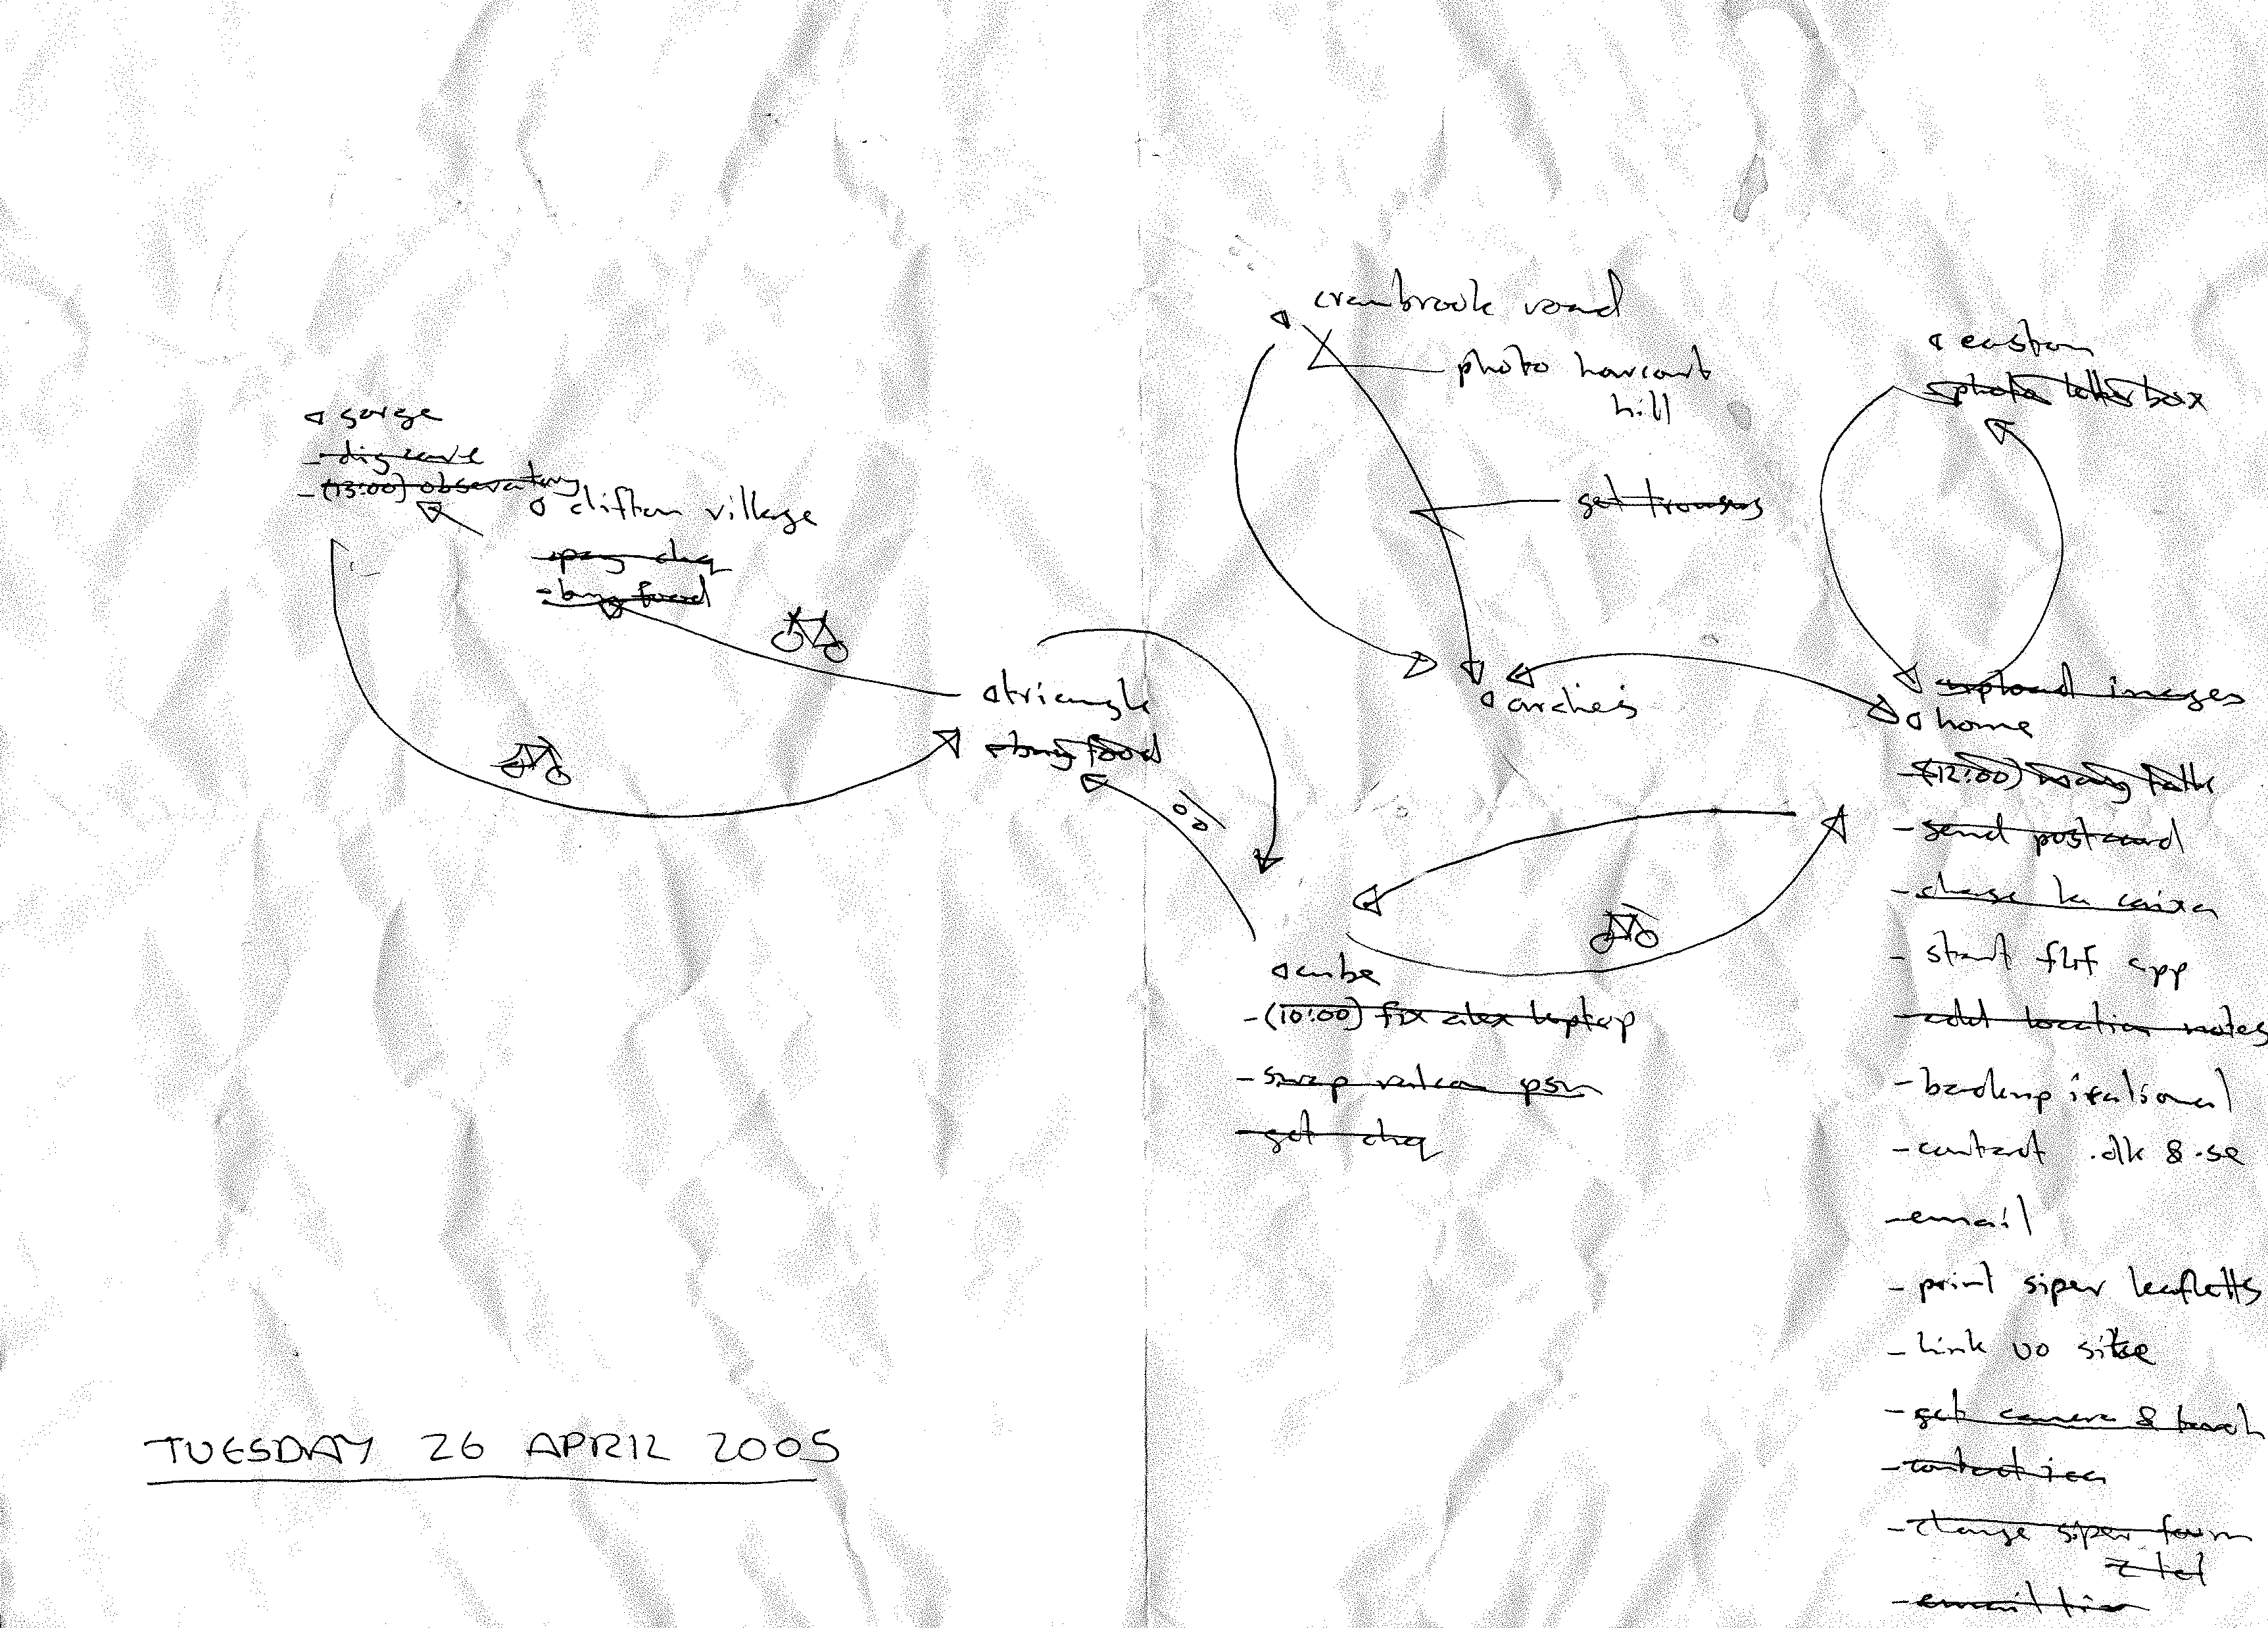 cranbrook road
photo harcourt
hill
get trousers
easton
photo letter box
gorge
- dig cave
- (13:00) observatory
clifton village
- pay chq
- buy food
triangle
- buy food
arches
upload images
home
- (12:00)
- send postcard
- chase la caixa
- start app
- add location notes
- backup irational
- contact .dk & .se
- email
- print siper leafletts
- link up site
- get camera &
- contact
- change siper form
tel
- email
cube
- (10:00) fix alex laptop
- swap vulcan psu
- get chq
TUESDAY 26 APRIL 2005